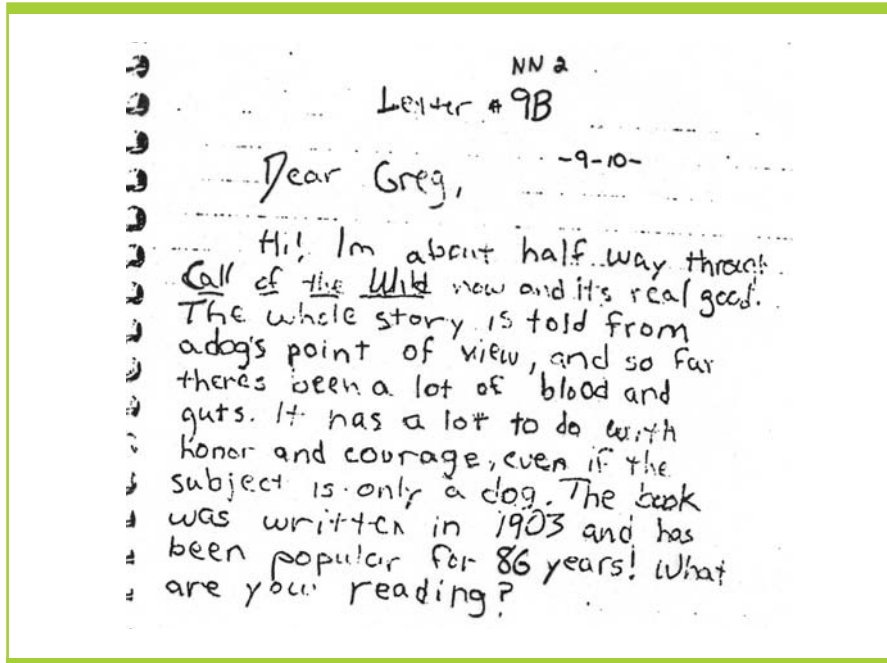 NN 2
Letter # 9B
-9-10-
Dear Greg,
Hi! Im about half way through
Call of the Wild now and it's real good.
The whole story is told from
a dog's point of view, and so far
theres been a lot of blood and
guts. It has a lot to do with
honor and courage, even if the
subject is only a dog. The book
was written in 1903 and has
been popular for 86 years! What
are you reading?